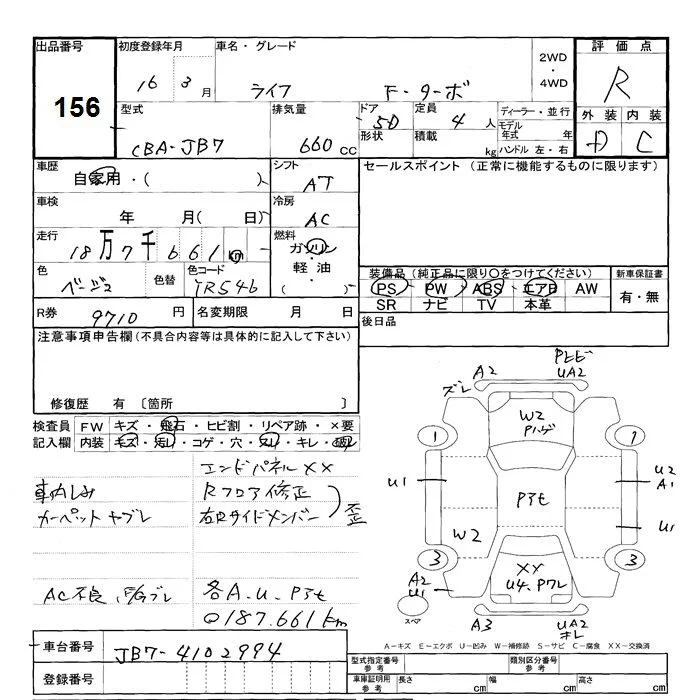 出品番号
156
初度登録年月
16 3月
車名・グレード
ライフ F・ターボ
2WD
・
4WD
評価点
R
外装 内装
D C
型式
CBA-JB7
排気量
660 cc
ドア
5D
形状
定員
4人
積載
kg
ディーラー・並行
モデル年式 年
ハンドル 左・右
車歴
自家用・( )
シフト
AT
セールスポイント (正常に機能するものに限ります)
車検
年 月( 日)
冷房
AC
走行
18万7千661km
燃料
ガソリン
・
軽油
( )
色
ベージュ
色替
色コード
YR54b
装備品(純正品に限り○をつけてください)
PS PW ABS エアB AW
SR ナビ TV 本革
新車保証書
有・無
R券
9710円
名変期限 月 日
後日品
注意事項申告欄(不具合内容等は具体的に記入して下さい)
修復歴 有 〔箇所 〕
検査員 FW キズ・飛石・ヒビ割・リペア跡・×要
記入欄 内装 キズ・汚れ・コゲ・穴・スレ・キレ・破れ
エンドパネルXX
車内しみ
Rフロア修正
カーペットヤブレ
右Rサイドメンバー
歪
AC不良
各A.U.Pアセ
187.661km
ズレ A2 UA2
W2
Pハゲ
1 1
U1 U2
A1
Pアセ
U1
W2
3 3
XX
U4.Pワレ
A2
U1
スペア
A3 UA2
A-キズ E-エクボ U-凹み W-補修跡 S-サビ C-腐食 XX-交換済
車台番号
JB7-4102994
登録番号
型式指定番号
参考
類別区分番号
参考
車庫証明用
参考
長さ cm 幅 cm 高さ cm